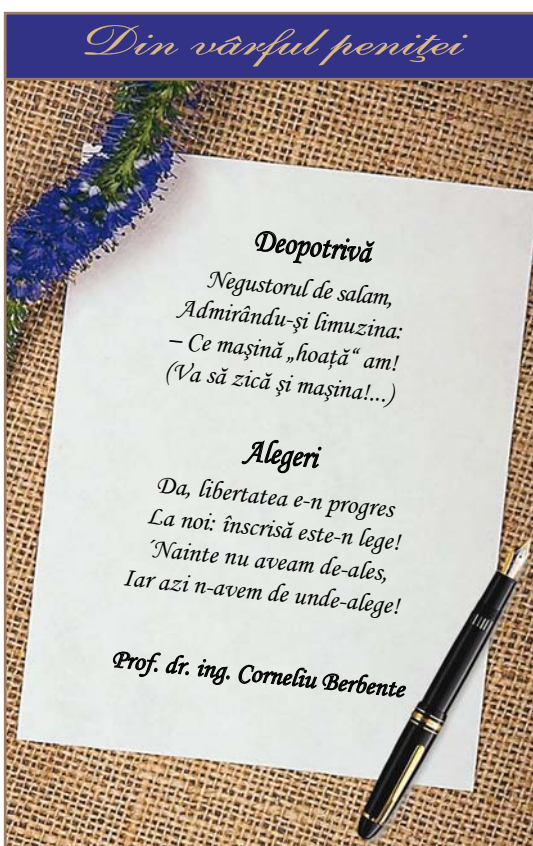 Din vârful peniţei
Deopotrivă
Negustorul de salam,
Admirându-şi limuzina:
– Ce maşină „hoaţă“ am!
(Va să zică şi maşina!...)
Alegeri
Da, libertatea e-n progres
La noi: înscrisă este-n lege!
´Nainte nu aveam de-ales,
Iar azi n-avem de unde-alege!
Prof. dr. ing. Corneliu Berbente